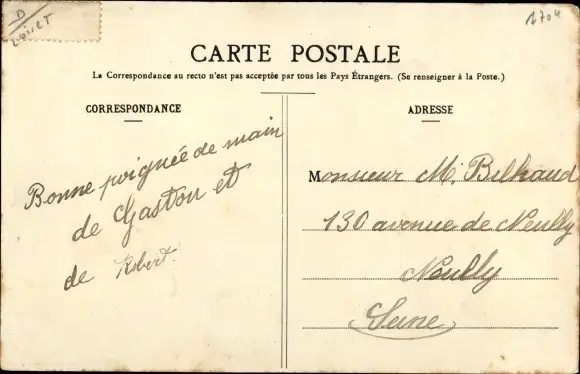 D
LOIRET
1704
CARTE POSTALE
La Correspondance au recto n'est pas acceptée par tous les Pays Étrangers. (Se renseigner à la Poste.)
CORRESPONDANCE
Bonne poignée de main
de Gaston et
de Robert.
ADRESSE
Monsieur M. Bilhaud
130 avenue de Neuilly
Neuilly
Seine